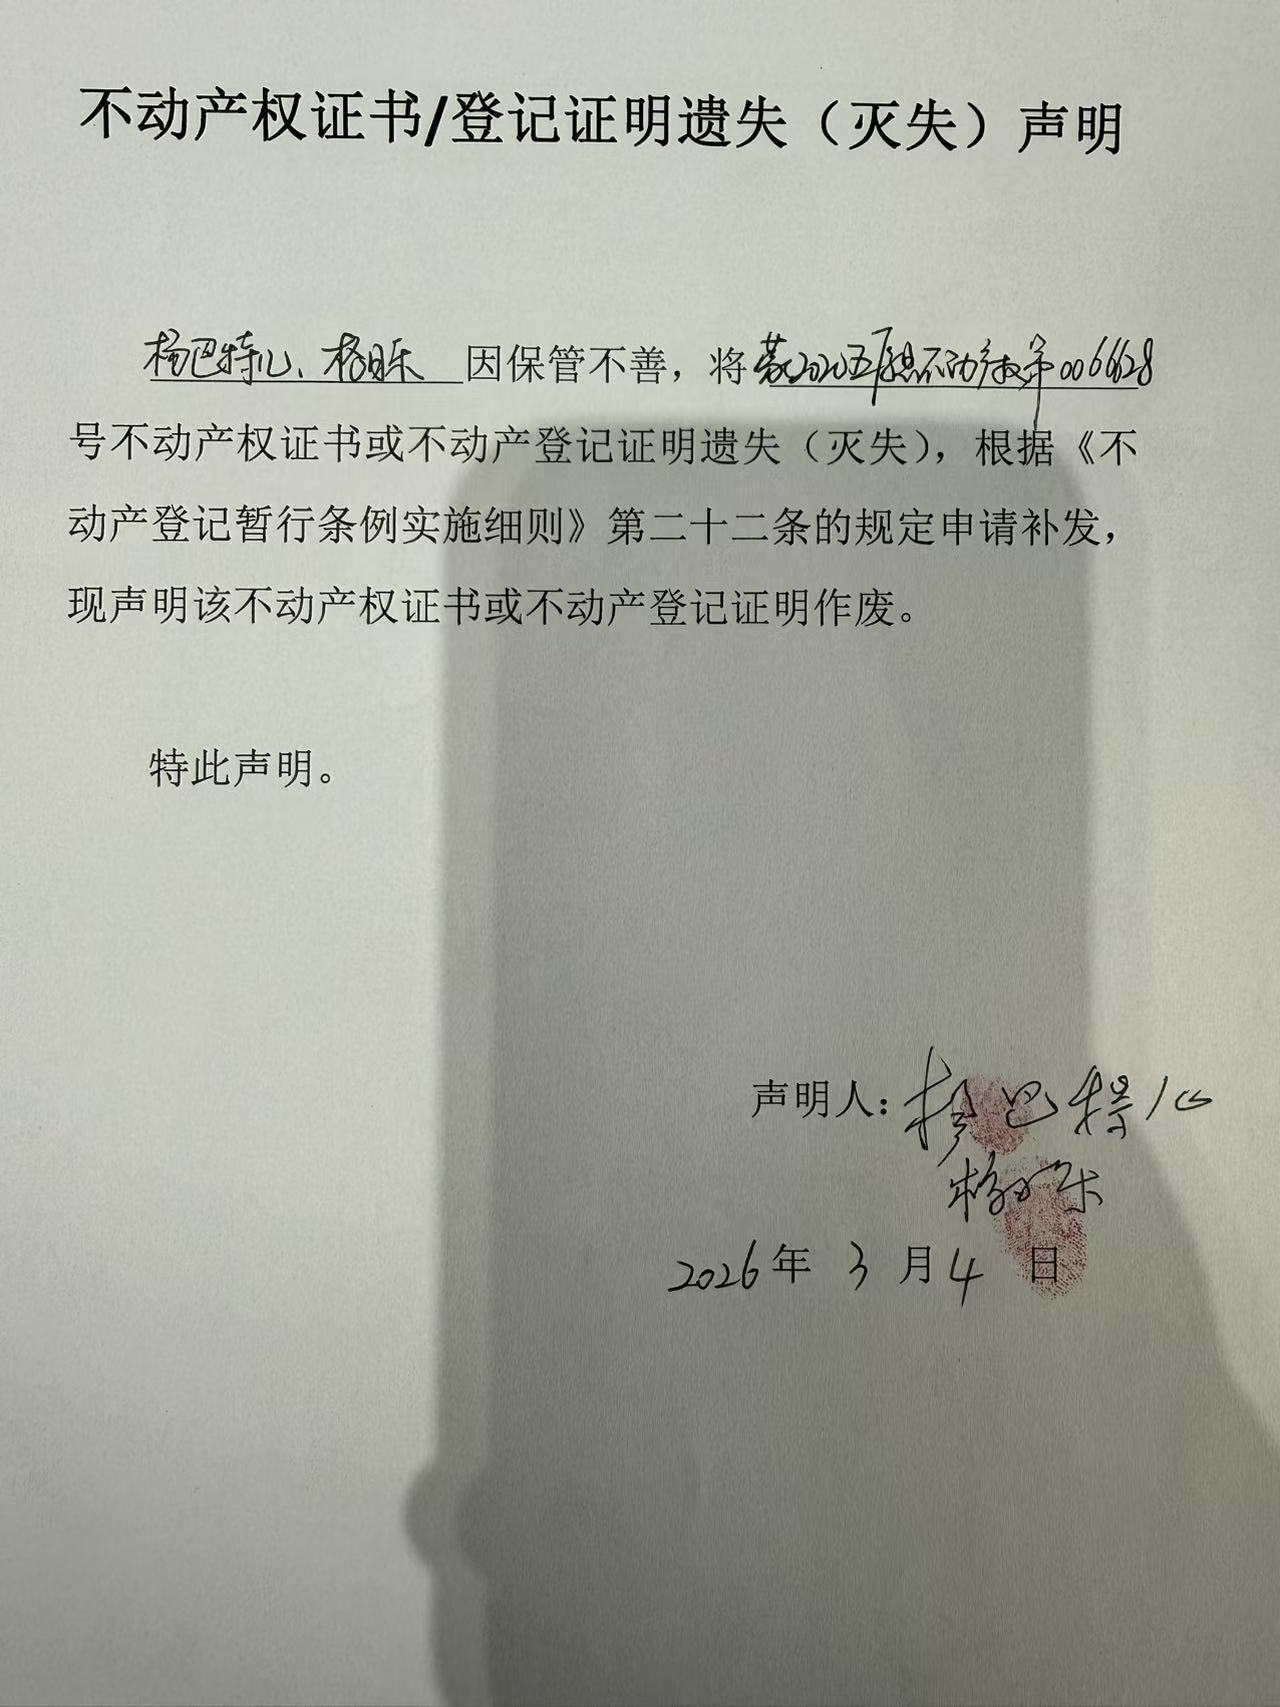 不动产权证书/登记证明遗失（灭失）声明
杨巴特儿、格日乐 因保管不善，将蒙2020五原县不动产权第0066628
号不动产权证书或不动产登记证明遗失（灭失），根据《不
动产登记暂行条例实施细则》第二十二条的规定申请补发，
现声明该不动产权证书或不动产登记证明作废。
特此声明。
声明人：杨巴特儿
格日乐
2026年 3 月 4 日